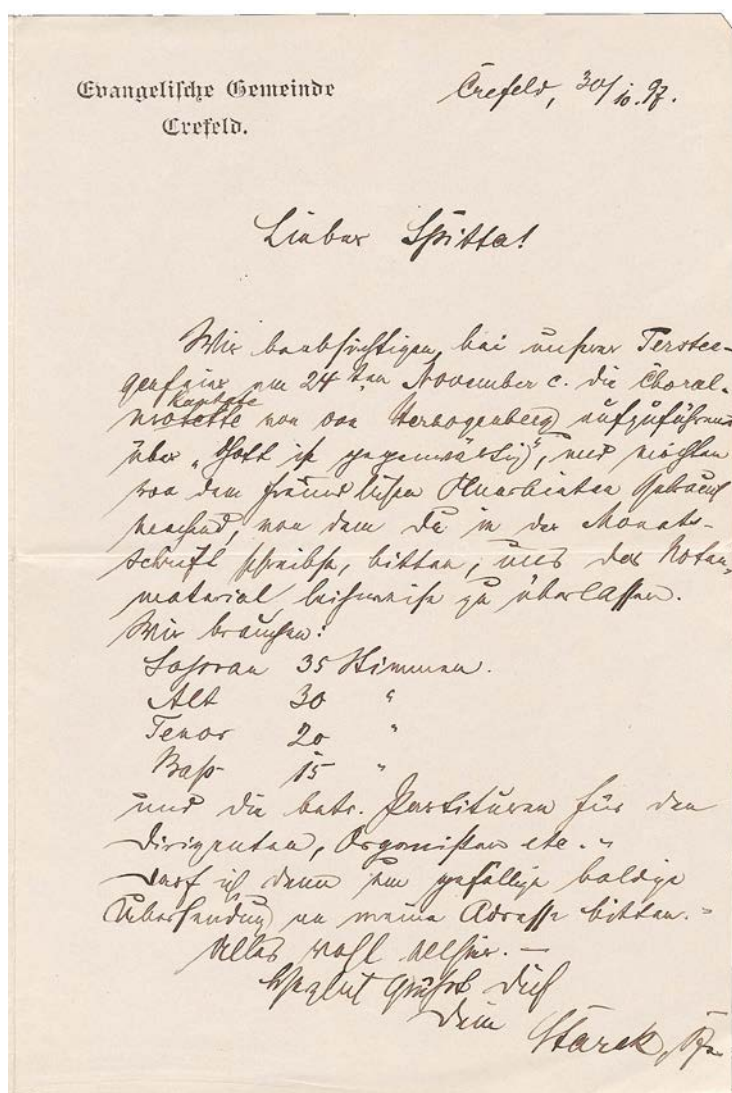 Evangelische Gemeinde
Crefeld.
Crefeld, 30/10. 97.
Lieber Spitta!
Wir beabsichtigen bei unserer Terstee-
genfeier am 24ten November c. die Choral-
kantate
motette von von Herzogenberg aufzuführen
über „Gott ist gegenwärtig", und möchten
von dem freundlichen Anerbieten Gebrauch
machend, von dem Du in der Monats-
schrift schreibst, bitten, uns das Noten-
material leihweise zu überlassen.
Wir brauchen:
Sopran 35 Stimmen.
Alt 30 "
Tenor 20 "
Baß 15 "
und die betr. Partituren für den
Dirigenten, Organisten etc. –
Darf ich denn um gefällige baldige
Übersendung an meine Adresse bitten. –
Alles wohl allhier. –
Herzlich grüßt Dich
Dein Starck, Pfr.